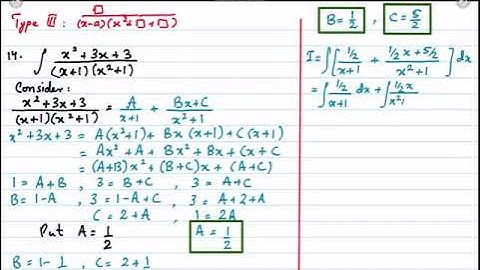 Type III: □ / (x-a)(x²+□+□)
14. ∫ x²+3x+3 / (x+1)(x²+1)
Consider:
x²+3x+3 / (x+1)(x²+1) = A / x+1 + Bx+C / x²+1
x²+3x+3 = A(x²+1)+ Bx(x+1)+C(x+1)
= Ax²+A+ Bx²+Bx+Cx+C
= (A+B)x²+(B+C)x+ (A+C)
1=A+B, 3=B+C, 3=A+C
B=1-A, 3=1-A+C, 3=A+2+A
C=2+A, 1=2A
Put A=1/2 A=1/2
B=1-1 , C=2+1
B=1/2 , C=5/2
I=∫[ 1/2 / x+1 + 1/2x+5/2 / x²+1 ]dx
=∫ 1/2 / x+1 dx+∫ 1/2x / x²1